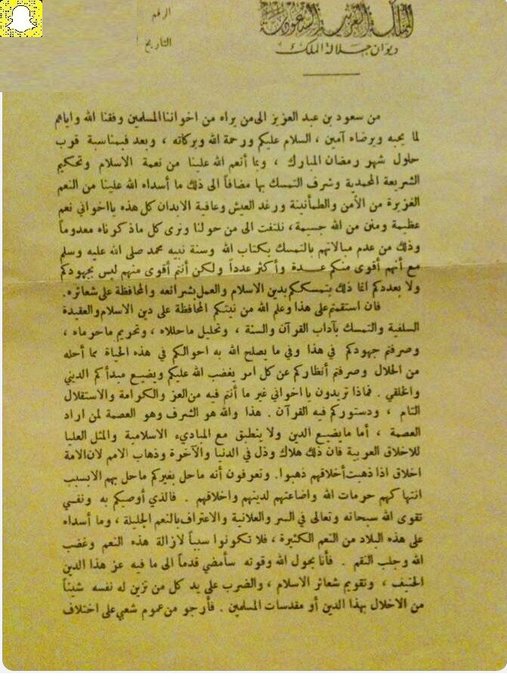 الرقم
التاريخ
المملكة العربية السعودية
ديوان جلالة الملك
من سعود بن عبد العزيز الى من يراه من اخواننا المسلمين وفقنا الله واياهم
لما يحبه ويرضاه آمين ، السلام عليكم ورحمة الله وبركاته ، وبعد فبمناسبة قرب
حلول شهر رمضان المبارك ، وبما أنعم الله علينا من نعمة الاسلام وتحكيم
الشريعة المحمدية وشرف التمسك بها مضافاً الى ذلك ما أسداه الله علينا من النعم
الغزيرة من الأمن والطمأنينة ورغد العيش وعافية الابدان كل هذه يا اخواني نعم
عظيمة ومنن من الله جسيمة، نلتفت الى من حولنا ونرى كل ما ذكرناه معدوماً
وذلك من عدم مبالاتهم بالتمسك بكتاب الله وسنة نبيه محمد صلى الله عليه وسلم
مع أنهم أقوى منكم عدة وأكثر عدداً ولكن أنتم أقوى منهم ليس بجهودكم
ولا بعددكم انما ذلك بتمسككم بدين الاسلام والعمل بشرائعه والمحافظة على شعائره.
فان استقمتم على هذا وعلم الله من نيتكم المحافظة على دين الاسلام والعقيدة
السلفية والتمسك بآداب القرآن والسنة ، وتحليل ما حللاه ، وتحريم ما حرماه ،
وصرفتم جهودكم في هذا وفي ما يصلح الله به احوالكم في هذه الحياة بما أحله
من الحلال وصرفتم أنظاركم عن كل امر يغضب الله عليكم ويضيع مبدأكم الديني
والخلقي . فماذا تريدون يا اخواني غير ما أنتم فيه من العز والكرامة والاستقلال
التام ، ودستوركم فيه القرآن . هذا والله هو الشرف وهو العصمة لمن اراد
العصمة ، أما ما يضيع الدين ولا ينطبق مع المباديء الاسلامية والمثل العليا
للاخلاق العربية فان ذلك هلاك وذل في الدنيا والآخرة وذهاب الامم لان الامة
اخلاق اذا ذهبت أخلاقهم ذهبوا. وتعرفون أنه ما حل بغيركم ما حل بهم الا بسبب
انتهاكهم حرمات الله واضاعتهم لدينهم واخلاقهم . فالذي أوصيكم به ونفسي
تقوى الله سبحانه وتعالى في السر والعلانية والاعتراف بالنعم الجليلة ، وما أسداه
على هذه البلاد من النعم الكثيرة ، فلا تكونوا سبباً لازالة هذه النعم وغضب
الله وجلب النقم . فأنا بحول الله وقوته سأمضي قدماً الى ما فيه عز هذا الدين
الحنيف ، وتقويم شعائر الاسلام ، والضرب على يد كل من تزين له نفسه شيئاً
من الاخلال بهذا الدين أو مقدسات المسلمين . فأرجو من عموم شعبي على اختلاف